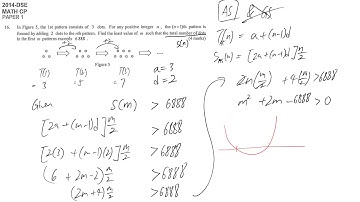 2014-DSE
MATH CP
PAPER 1
16. In Figure 5, the 1st pattern consists of 3 dots. For any positive integer n, the (n+1)th pattern is
formed by adding 2 dots to the nth pattern. Find the least value of m such that the total number of dots
in the first m patterns exceeds 6888. (4 marks)
+2 +2
S(m)
Figure 5
T(1) T(2) T(3)
=3 =5 =7
a=3
d=2
Given S(m) > 6888
[2a+(m-1)d] m/2 > 6888
[2(3)+(m-1)(2)] m/2 > 6888
(6+2m-2) m/2 > 6888
(2m+4) m/2 > 6888
AS
T(n) = a+(n-1)d
S(m) = [2a+(m-1)d] m/2
2m(m/2) + 4(m/2) > 6888
m² + 2m - 6888 > 0